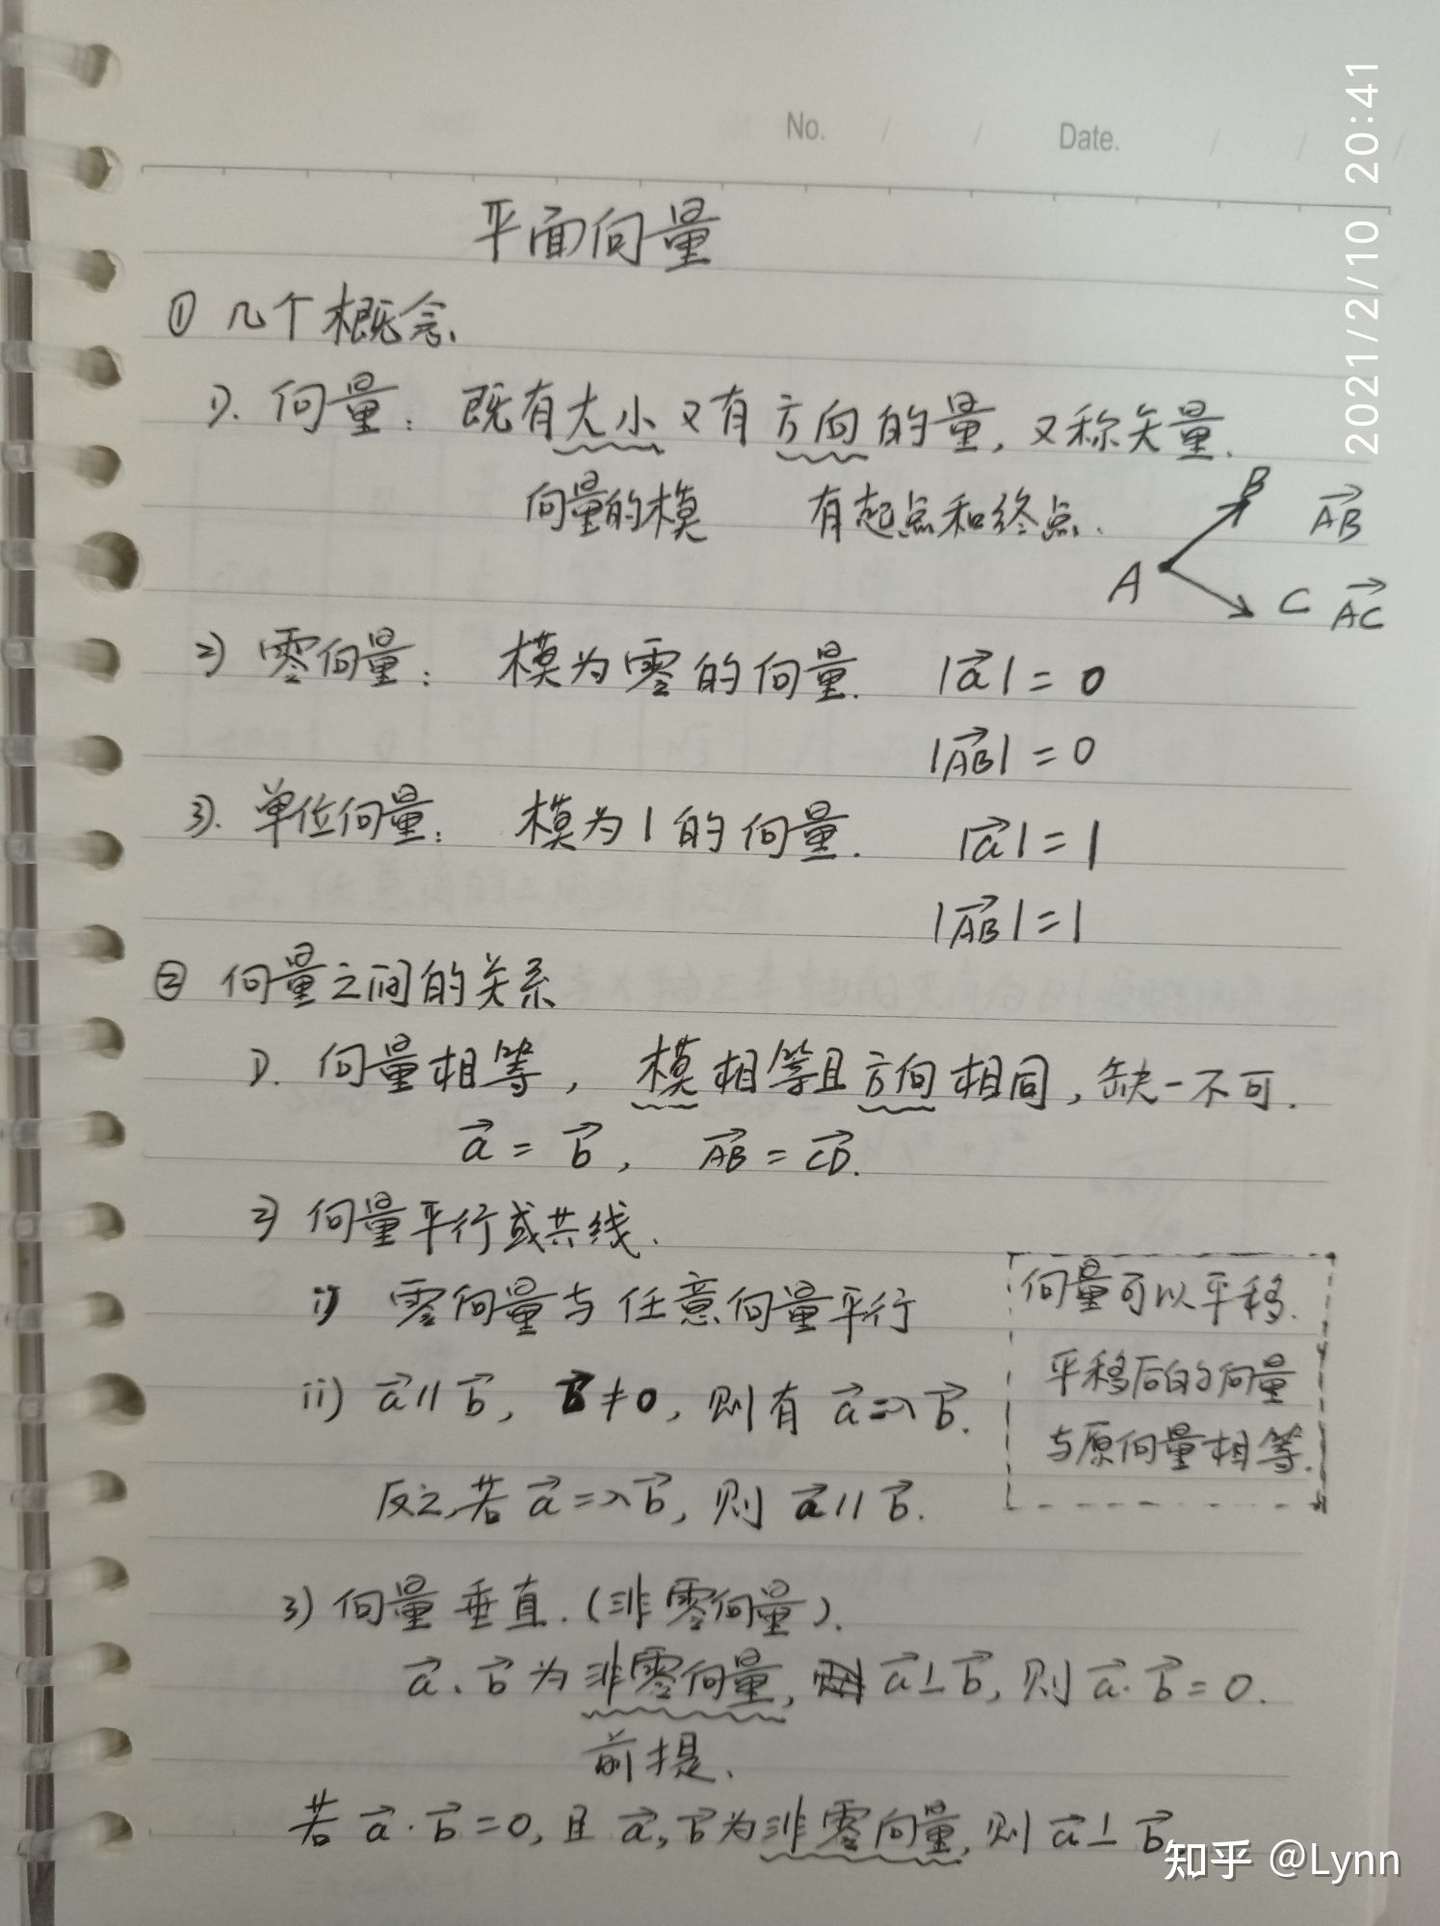 No. / / Date. / /
2021/2/10 20:41
平面向量
① 几个概念.
1). 向量: 既有大小又有方向的量, 又称矢量.
向量的模 有起点和终点.
B
A
C
\vec{AB}
\vec{AC}
2) 零向量: 模为零的向量. |\vec{a}| = 0
|\vec{AB}| = 0
3). 单位向量: 模为1的向量. |\vec{a}| = 1
|\vec{AB}| = 1
② 向量之间的关系
1). 向量相等, 模相等且方向相同, 缺一不可.
\vec{a} = \vec{b}, \vec{AB} = \vec{CD}.
2) 向量平行或共线.
i) 零向量与任意向量平行
ii) \vec{a} // \vec{b}, \vec{b} ≠ 0, 则有 \vec{a} = λ\vec{b}.
反之, 若 \vec{a} = λ\vec{b}, 则 \vec{a} // \vec{b}.
向量可以平移.
平移后的向量
与原向量相等.
3) 向量垂直. (非零向量).
\vec{a}、\vec{b} 为非零向量, \vec{a} ⊥ \vec{b}, 则 \vec{a} · \vec{b} = 0.
前提.
若 \vec{a} · \vec{b} = 0, 且 \vec{a}, \vec{b} 为非零向量, 则 \vec{a} ⊥ \vec{b}.
知乎 @Lynn